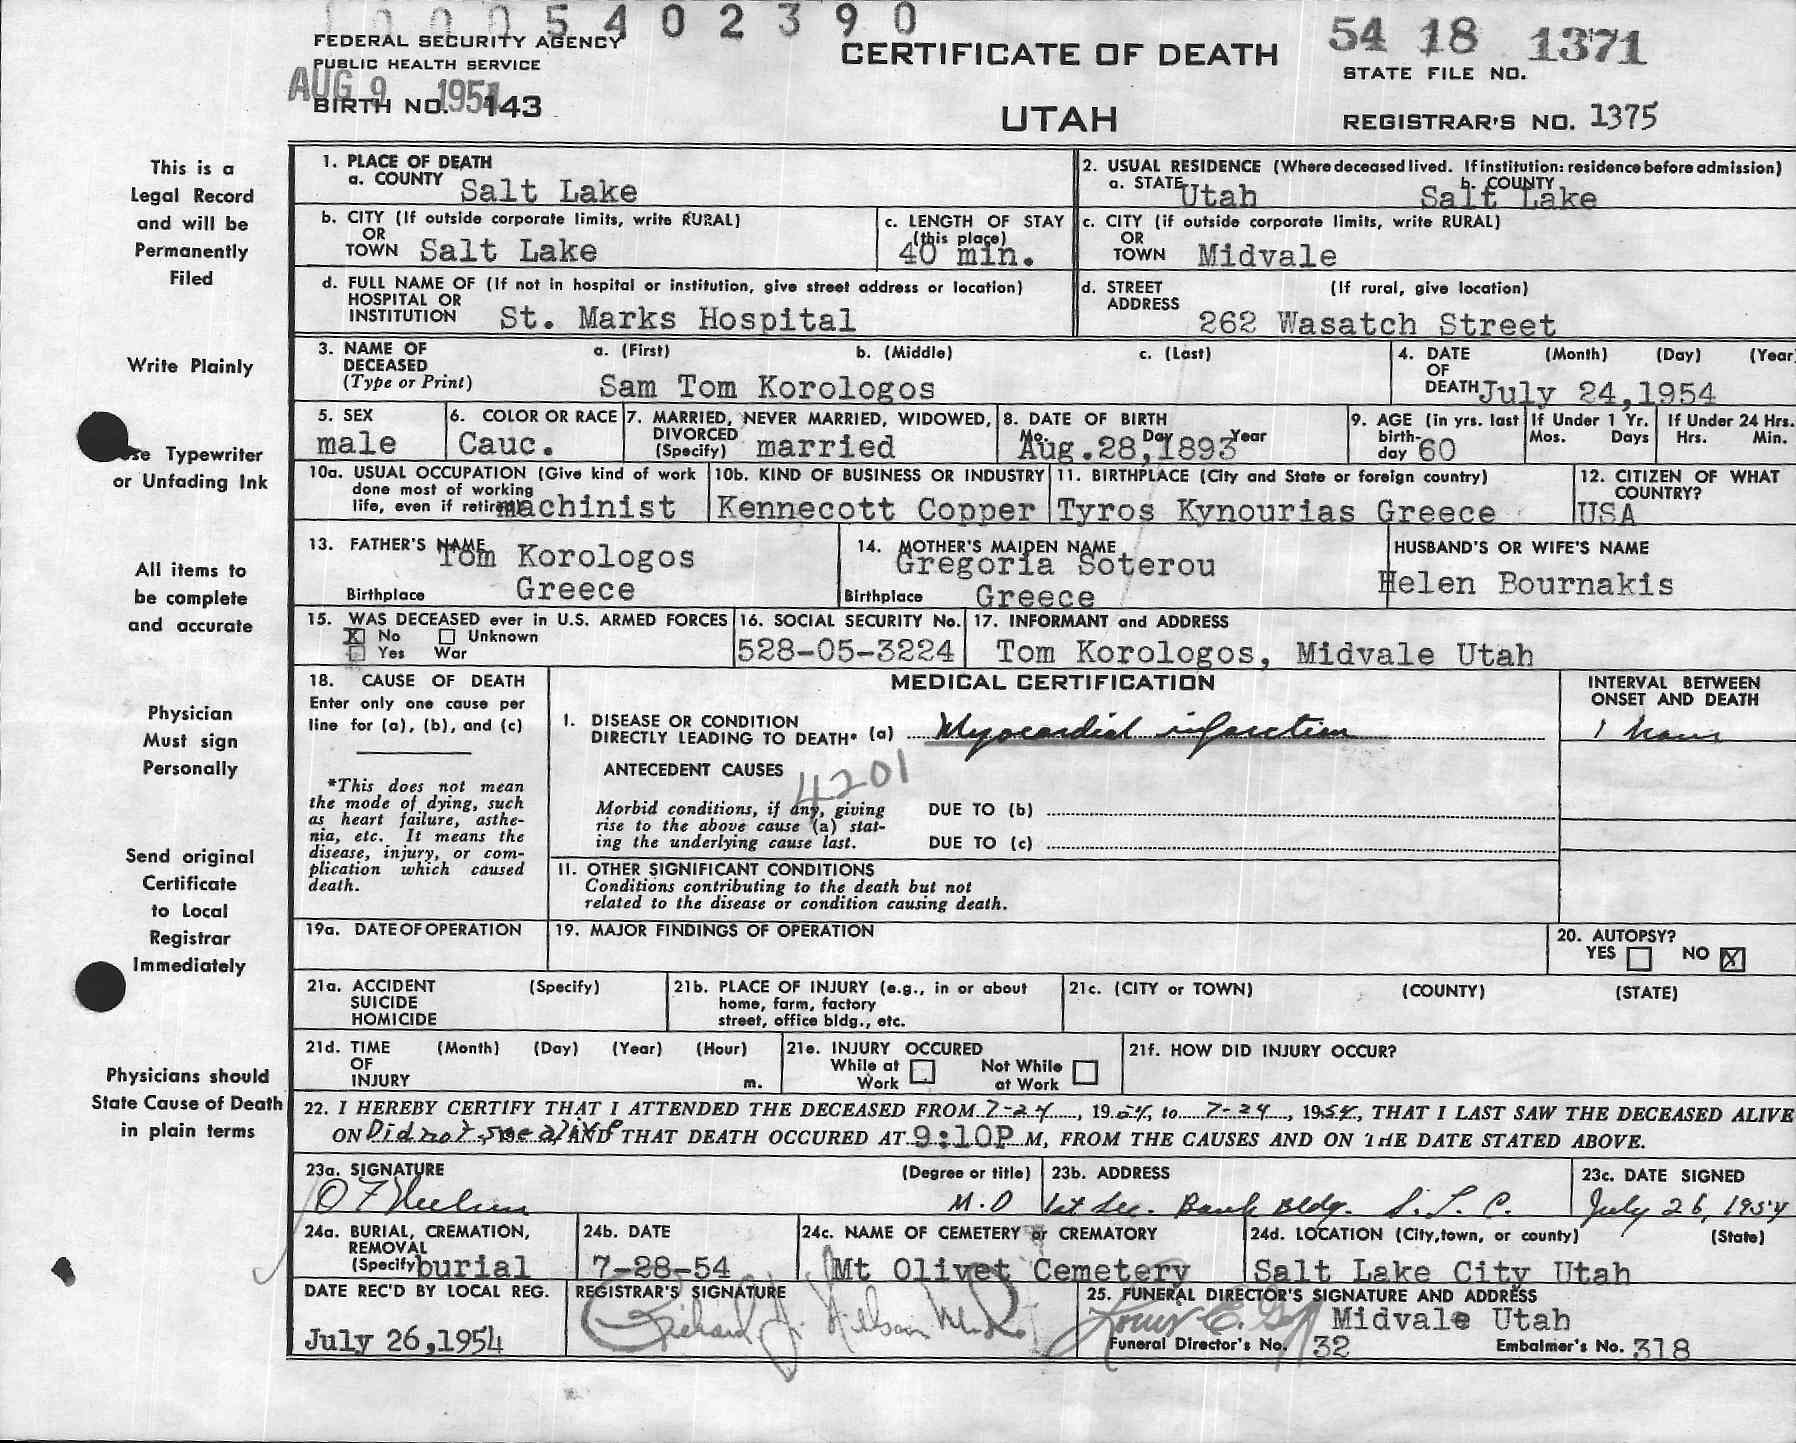 1 0 0 0 5 4 0 2 3 9 0
FEDERAL SECURITY AGENCY
PUBLIC HEALTH SERVICE
AUG 9 195
BIRTH NO. 143
CERTIFICATE OF DEATH
UTAH
54 18 1371
STATE FILE NO.
REGISTRAR'S NO. 1375
This is a
Legal Record
and will be
Permanently
Filed
Write Plainly
Typewriter
or Unfading Ink
All items to
be complete
and accurate
Physician
Must sign
Personally
Send original
Certificate
to Local
Registrar
Immediately
Physicians should
State Cause of Death
in plain terms
1. PLACE OF DEATH
a. COUNTY Salt Lake
2. USUAL RESIDENCE (Where deceased lived. If institution: residence before admission)
a. STATE Utah b. COUNTY Salt Lake
b. CITY (If outside corporate limits, write RURAL)
OR
TOWN Salt Lake
c. LENGTH OF STAY
(this place)
40 min.
c. CITY (if outside corporate limits, write RURAL)
OR
TOWN Midvale
d. FULL NAME OF (If not in hospital or institution, give street address or location)
HOSPITAL OR
INSTITUTION St. Marks Hospital
d. STREET (If rural, give location)
ADDRESS
262 Wasatch Street
3. NAME OF a. (First) b. (Middle) c. (Last)
DECEASED
(Type or Print) Sam Tom Korologos
4. DATE (Month) (Day) (Year
OF
DEATH July 24,1954
5. SEX
male
6. COLOR OR RACE
Cauc.
7. MARRIED, NEVER MARRIED, WIDOWED,
DIVORCED
(Specify) married
8. DATE OF BIRTH
Mo. Day Year
Aug.28,1893
9. AGE (in yrs. last
birth-
day 60
If Under 1 Yr.
Mos. Days
If Under 24 Hrs.
Hrs. Min.
10a. USUAL OCCUPATION (Give kind of work
done most of working
life, even if retired) machinist
10b. KIND OF BUSINESS OR INDUSTRY
Kennecott Copper
11. BIRTHPLACE (City and State or foreign country)
Tyros Kynourias Greece
12. CITIZEN OF WHAT
COUNTRY?
USA
13. FATHER'S NAME
Tom Korologos
Birthplace Greece
14. MOTHER'S MAIDEN NAME
Gregoria Soterou
Birthplace Greece
HUSBAND'S OR WIFE'S NAME
Helen Bournakis
15. WAS DECEASED ever in U.S. ARMED FORCES
X No Unknown
Yes War
16. SOCIAL SECURITY No.
528-05-3224
17. INFORMANT and ADDRESS
Tom Korologos, Midvale Utah
18. CAUSE OF DEATH
Enter only one cause per
line for (a), (b), and (c)
*This does not mean
the mode of dying, such
as heart failure, asthe-
nia, etc. It means the
disease, injury, or com-
plication which caused
death.
MEDICAL CERTIFICATION
INTERVAL BETWEEN
ONSET AND DEATH
I. DISEASE OR CONDITION
DIRECTLY LEADING TO DEATH* (a) Myocardial infarction
1 hour
ANTECEDENT CAUSES
4201
Morbid conditions, if any, giving
rise to the above cause (a) stat-
ing the underlying cause last.
DUE TO (b)
DUE TO (c)
II. OTHER SIGNIFICANT CONDITIONS
Conditions contributing to the death but not
related to the disease or condition causing death.
19a. DATE OF OPERATION
19. MAJOR FINDINGS OF OPERATION
20. AUTOPSY?
YES NO X
21a. ACCIDENT (Specify)
SUICIDE
HOMICIDE
21b. PLACE OF INJURY (e.g., in or about
home, farm, factory
street, office bldg., etc.
21c. (CITY or TOWN) (COUNTY) (STATE)
21d. TIME (Month) (Day) (Year) (Hour)
OF
INJURY m.
21e. INJURY OCCURED
While at Work Not While at Work
21f. HOW DID INJURY OCCUR?
22. I HEREBY CERTIFY THAT I ATTENDED THE DECEASED FROM 7-24, 1954, to 7-24, 1954, THAT I LAST SAW THE DECEASED ALIVE
ON Did not see alive, 19 AND THAT DEATH OCCURED AT 9:10P M, FROM THE CAUSES AND ON THE DATE STATED ABOVE.
23a. SIGNATURE (Degree or title)
M.D
23b. ADDRESS
1st Sec. Bank Bldg. S.L.C.
23c. DATE SIGNED
July 26, 1954
24a. BURIAL, CREMATION,
REMOVAL
(Specify burial
24b. DATE
7-28-54
24c. NAME OF CEMETERY or CREMATORY
Mt Olivet Cemetery
24d. LOCATION (City, town, or county) (State)
Salt Lake City Utah
DATE REC'D BY LOCAL REG.
July 26,1954
REGISTRAR'S SIGNATURE
Richard J. Nelson M.D.
25. FUNERAL DIRECTOR'S SIGNATURE AND ADDRESS
Midvale Utah
Funeral Director's No. 32 Embalmer's No. 318